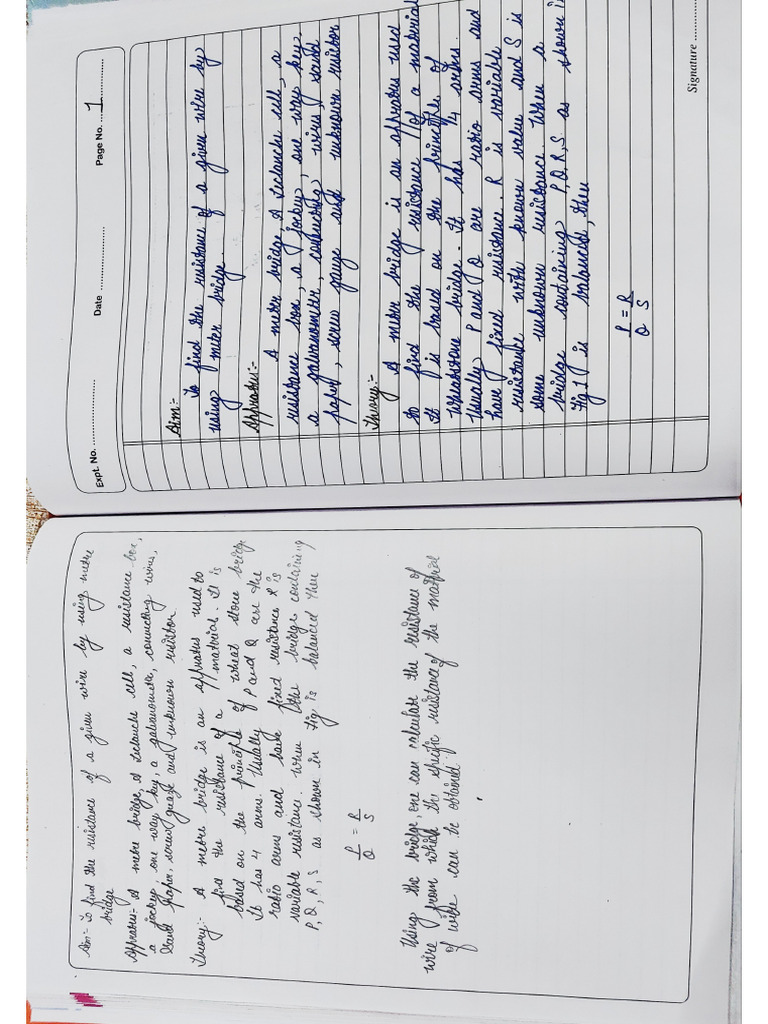 Aim:- To find the resistance of a given wire by using metre
bridge
Appratus:- A metre bridge, A leclanche cell, a resistance box,
a jockey, one way key, a galvanometer, connecting wires,
Sand paper, screw gauge and unknown resistor.
Theory:- A metre bridge is an appratus used to
find the resistance of a material. It is
based on the principle of wheat stone bridge
It has 4 arms. Usually P and Q are the
ratio arms and have fixed resistance R is
variable resistance. When the bridge containing
P, Q, R, S as shown in fig is balanced then
P/Q = R/S
Using the bridge, one can calculate the resistance of
wire from which the specific resistance of the material
of wire can be obtained.
Expt. No. Date Page No. 1
Aim:-
To find the resistance of a given wire by
using meter bridge.
Appratus:-
A meter bridge, A leclanche cell, a
resistance box, a jockey, one way key,
a galvanometer, conducting wires, sand
paper, screw gauge and unknown resistor
Theory:-
A meter bridge is an appratus used
to find the resistance of a material
It is based on the principle of
Wheatstone bridge. It has 4 arms.
Usually P and Q are ratio arms and
have fixed resistance. R is variable
resistance with known value and S is
some unknown resistance. When a
bridge containing P, Q, R, S as shown in
fig 1 is balanced, then
P/Q = R/S
Signature